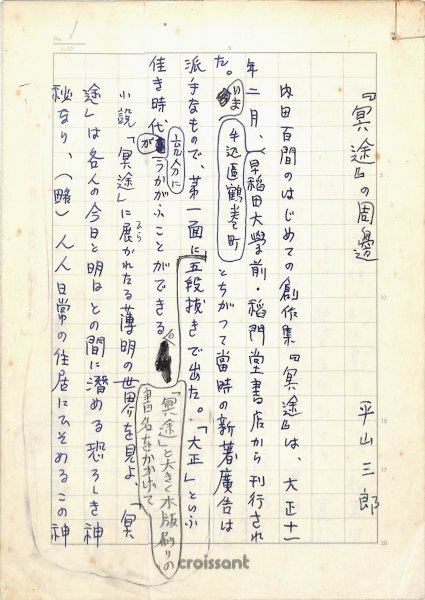 No. 1
『冥途』の周邊
平山三郎
内田百間のはじめての創作集『冥途』は、大正十一
年二月、早稻田大學前・稻門堂書店から刊行され
牛込區鶴巻町
た。いまとちがつて當時の新著廣告は
派手なもので、第一面に五段抜きで出た。「大正」といふ
『冥途』と大きく木版刷りの
書名をかかげて
佳き時代がうかがふことができる
充分に
小説「冥途」に展かれたる薄明の世界を見よ、「冥
ひら
途」は各人の今日と明日との間に潜める恐ろしき神
秘なり、(略)人人日常の住居にひそめるこの神
croissant